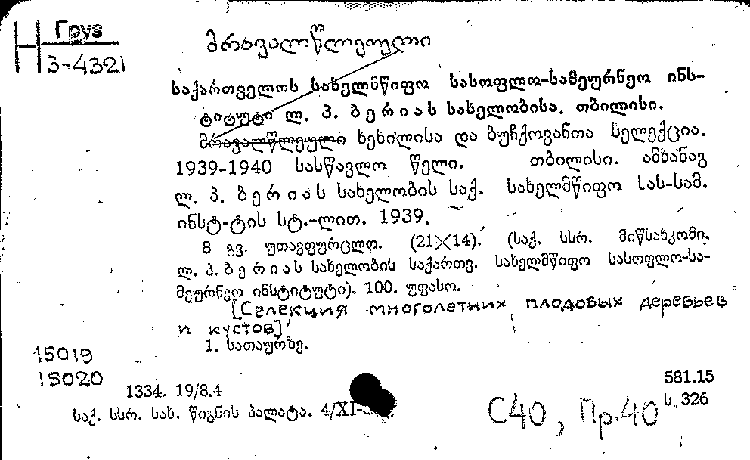 Н Груз
3-4321
მრავალწლეული
საქართველოს სახელმწიფო სასოფლო-სამეურნეო ინს-
ტიტუტი ლ. პ. ბერიას სახელობისა. თბილისი.
მრავალწლეული ხეხილისა და ბუჩქოვანთა სელექცია.
1939-1940 სასწავლო წელი. თბილისი. ამხანაგ
ლ. პ. ბერიას სახელობის საქ. სახელმწიფო სას-სამ.
ინსტ-ტის სტ.-ლით. 1939.
8 გვ. უთავფურცლო. (21×14). (საქ. სსრ. მიწსახკომი.
ლ. პ. ბერიას სახელობის საქართვ. სახელმწიფო სასოფლო-სა-
მეურნეო ინსტიტუტი). 100. უფასო.
[Селекция многолетних плодовых деревьев
и кустов]
1. სათაურზე.
15019
15020
1334. 19/8.4
581.15
ს. 326
საქ. სსრ. სახ. წიგნის პალატა. 4/XI-
С40, Пр.40